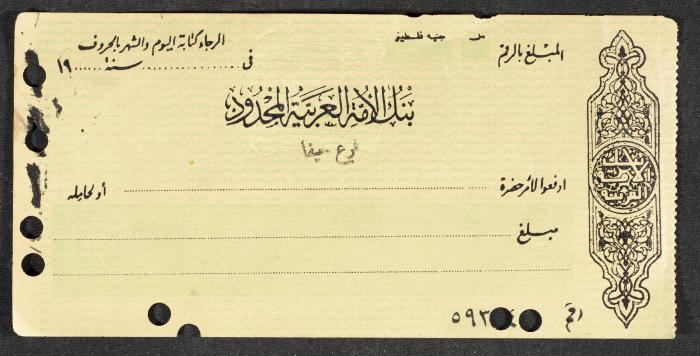 المبلغ بالرقم
مل جنيه فلسطيني
الرجاء كتابة اليوم والشهر بالحروف
في .................. سنة ..... ١٩
بنك الأمة العربية المحدود
فرع حيفا
ادفعوا لأمر حضرة .................. أو لحامله
مبلغ ..................
رقم ٥٩٣ ٤